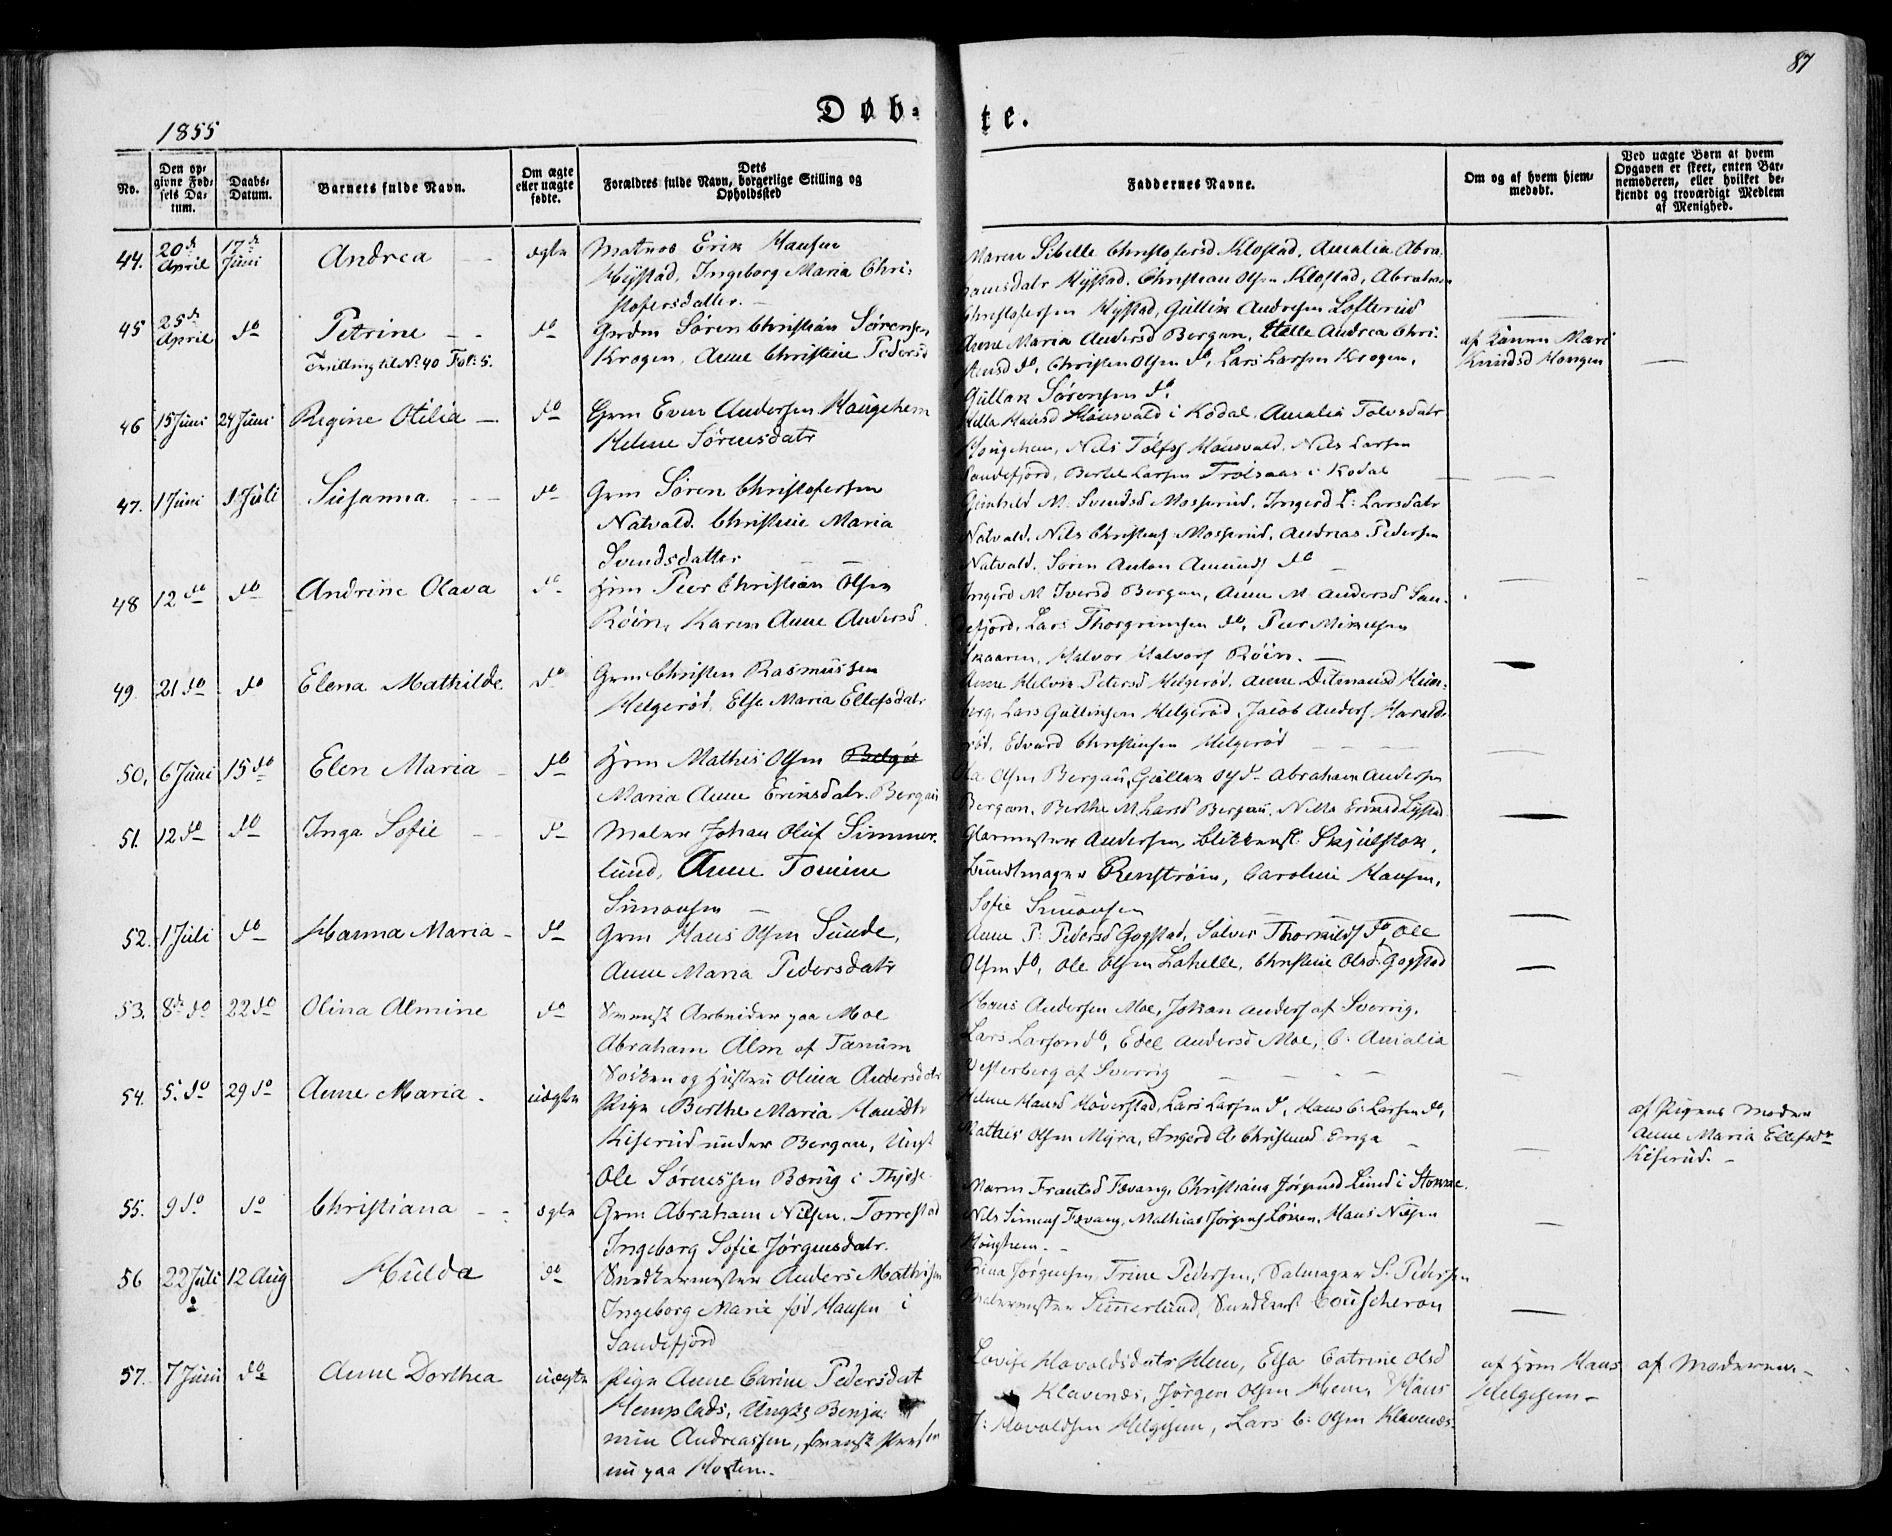 87
Døb- te.
1855
No.
Den op-
givne Fød-
sels Da-
tum.
Daabs-
Datum.
Barnets fulde Navn.
Om ægte
eller uægte
fødte.
Dets
Forældres fulde Navn, borgerlige Stilling og
Opholdssted
Faddernes Navne.
Om og af hvem hjem-
medøbt.
Ved uægte Børn at hvem
Opgaven er skeet, enten Bar-
nemoderen, eller hvilket be-
kjendt og troværdigt Medlem
af Menighed.
44. 20de April 17de Juni Andrea ægte
Matros Erik Hansen
Hystad, Ingeborg Maria Chri-
stofersdatter.
Maren Sibelle Christofersd Klostad, Amalia Abra-
hamsdatr Hystad, Christian Olsen Klostad, Abraham
Christofersen Hystad, Gullik Andresen Lofterud
45 25de April do Petrine do
Tvilling til No 40 Fol: 5.
Grdm Søren Christian Sørensen
Krogen, Anne Christine Pedersd
Anne Maria Andersd Bergan, Helle Andrea Chri-
stensd do, Christen Olsen do, Lars Larsen Krogen,
Gullik Sørensen do
af Konen Mari
Knudsd Haugen
46 15 Juni 24 Juni Regine Otilia do
Grm Even Andersen Haugehem
Helene Sørensdatr
Hella Hansd Hausvald i Kodal, Amalia Tolvsdatr
Haugehem, Nils Tolfs Hausvald, Nils Larsen
Sandefjord, Bertel Larsen Trolsaas i Kodal
47. 1 Juni 1 Juli Susanna do
Grm Søren Christofersen
Natvald. Christine Maria
Svendsdatter
Gunhild M. Svendsd Mosserud, Ingerd L: Larsdatr
Natvald, Nils Christens Mosserud, Andreas Pedersen
Natvald, Søren Anton Amunds do
48 12 do do Andrine Olava do
Hrm Peer Christian Olsen
Røin, Karen Anne Andersd.
Ingerd M Iversd Bergan, Anne M Andersd San-
defjord, Lars Thorgrimsen do, Peer Mikelsen
Skaaren, Halvor Halvors Røin.
49. 21 do do Elena Mathilde do
Grm Christen Rasmussen
Helgerød, Else Maria Ellefsdatr
Anne Helvik Petersd Helgerød, Anne Ditmansd Heim-
berg, Lars Gullinsen Helgerød, Jacob Anders Harald-
rød, Edvard Christensen Helgerød
50. 6 Juni 15 do Elen Maria do
Hrm Mathis Olsen
Maria Anne Eriksdatr. Bergan
Ola Olsen Bergan, Gullik do Abraham Andersen
Bergan, Berthe M Larsd Bergan, Nilla Eriksd
51. 12 do do Inga Sofie do
Maler Johan Oluf Simmer-
lund, Anne Tomine
Simonsen
Glarmester Andersen, Blikkensl: Skjulstok,
Bundtmager Renstrøm, Caroline Hansen,
Sofie Simonsen
52. 1 Juli do Hanna Maria do
Grm Hans Olsen Sunde,
Anne Maria Pedersdatr
Anne P: Pedersd Gogstad, Sølver Thorkilds do, Ole
Olsen do, Ole Olsen Lahelle, Christine Olsd. Gogstad
53. 8de do 22 do Olina Almine do
Svensk Arbeider paa Moe
Abraham Alm af Tanum
Socken og Hustru Olina Andersdatr
Hans Andersen Moe, Johan Anders af Sverrig,
Lars Larson do, Edel Andersd Moe, C. Amalia
Vesterberg af Sverrig
54. 5. do 29 do Anne Maria uægte
Pige Berthe Maria Hansdtr
Kiserud under Bergan, Ungk
Ole Sørenssen Bærug i Thjose
Helene Hansd Haverstad, Lars Larsen do, Hans C: Larsen do,
Mathis Olsen Myra, Ingerd A Christensd Enga
af Pigens Moder
Anne Maria Ellefsdr
Kiserud.
55. 9 do do Christiana ægte
Grm Abraham Nilsen Torrestad
Ingeborg Sofie Jørgensdatr.
Maren Frantsd Tævang, Christiana Jørgensd Lund i Stokke.
Nils Simens Tævang, Mathias Jørgens Løken, Hans Nilsen
Haughem.
56 22 Juli 12 Aug Hulda do
Snedkermester Anders Mathisen
Ingeborg Marie fød Hansen i
Sandefjord
Jørgensen, Trine Pedersen, Salmager S. Pedersen
Malermester Simerlund, Snedkers: Couscheron
57. 7 Juni do Anne Dorthea uægte
Pige Anne Carine Pedersdat
Hemplads, Ungk Benja-
min Andreassen, svensk
nu paa Horten.
Lovise Havaldsdatr Hem, Elsa Catrine Olsd
Klavenæs, Jørgen Olsen Hem, Hans
J: Havaldsen Helgesem, Lars C: Olsen Klavenæs
af Hrm Hans
Helgesem
af Moderen